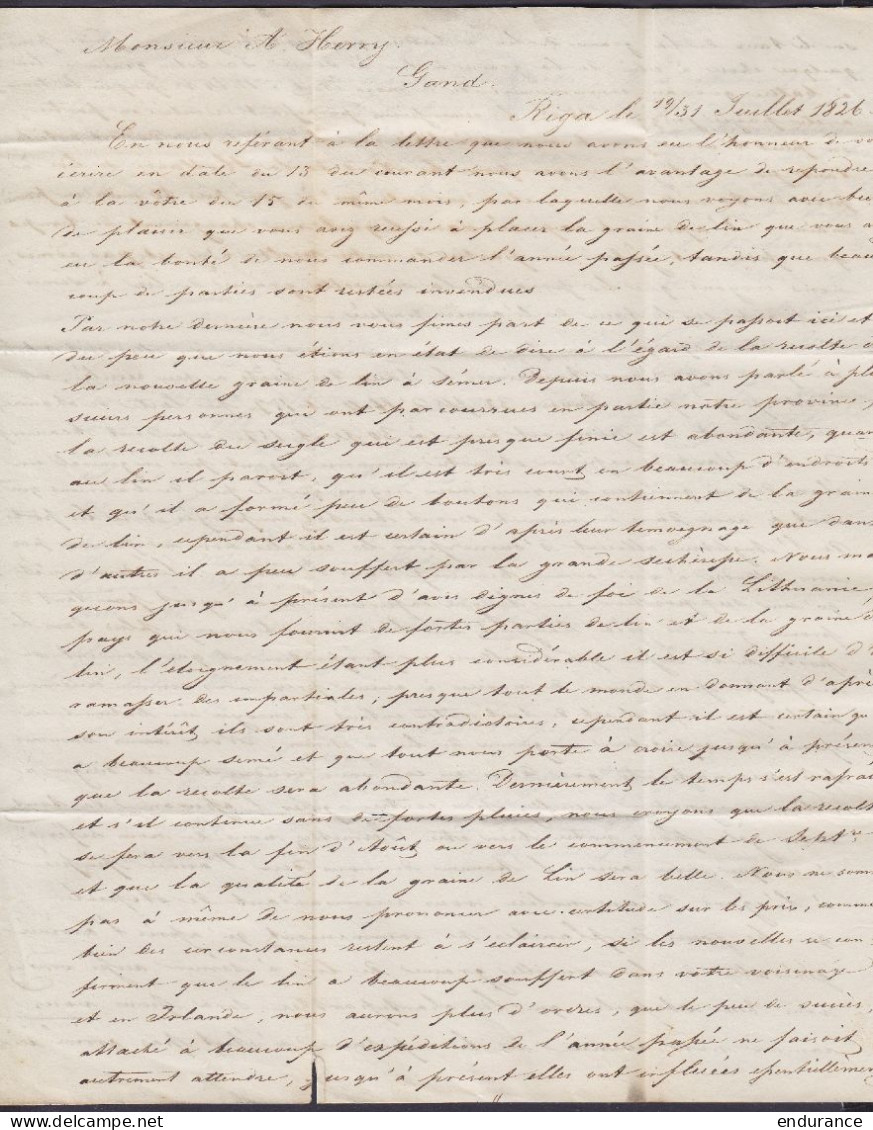 Monsieur A. Herry.
Gand.
Riga le 19/31 Juillet 1826.
En nous referant à la lettre que nous avons eu l'honneur de vo
écrire en date du 13 du courant nous avons l'avantage de repondre
à la vôtre du 15 du même mois, par laquelle nous voyons avec beau
de plaisir que vous avez reussi à placer la graine de lin que vous a
eu la bonté de nous commander l'année passée, tandis que beau
coup de parties sont restées invendues
Par notre dernière nous vous fimes part de ce qui se passoit ici et
du peu que nous étions en état de dire à l'égard de la recolte d
la nouvelle graine de lin à sémer. Depuis nous avons parlé à plu
sieurs personnes qui ont parcourrues en partie notre province,
la recolte du seigle qui est presque finie est abondante, quan
au lin il paroit, qu'il est très court en beaucoup d'endroits
et qu'il a formé peu de boutons qui contiennent de la grain
de lin, cependant il est certain d'après leur temoegnage que dans
d'autres il a peu souffert par la grande sechèresse. Nous man
queons jusqu'à présent d'aves dignes de foi de la Lithuanie,
pays qui nous fournit de fortes parties de lin et de la graine d
lin, l'éloignement étant plus considérable il est si difficile d'e
ramasser des impartiales, presque tout le monde en donnant d'aprè
son intérêt, ils sont très contradictoires, cependant il est certain qu
a beaucoup semé et que tout nous porte à croire jusqu'à présen
que la recolte sera abondante. Dernièrement le temps s'est rafrai
et s'il continue sans de fortes pluies, nous croyons que la recolt
se fera vers la fin d'Août, ou vers le commencement de Septre
et que la qualité de la graine de Lin sera belle. Nous ne som
pas à même de nous prononcer avec certitude sur les prix, comme
bien des circonstances restent à s'eclaircir, si les nouvelles se con
firment que le lin a beaucoup souffert dans votre voisinage
et en Irlande, nous aurons plus d'ordres, que le peu de succès,
attaché à beaucoup d'expéditions de l'année passée ne faisoit
autrement attendre, jusqu'à présent elles ont influées essentiellem
endurance